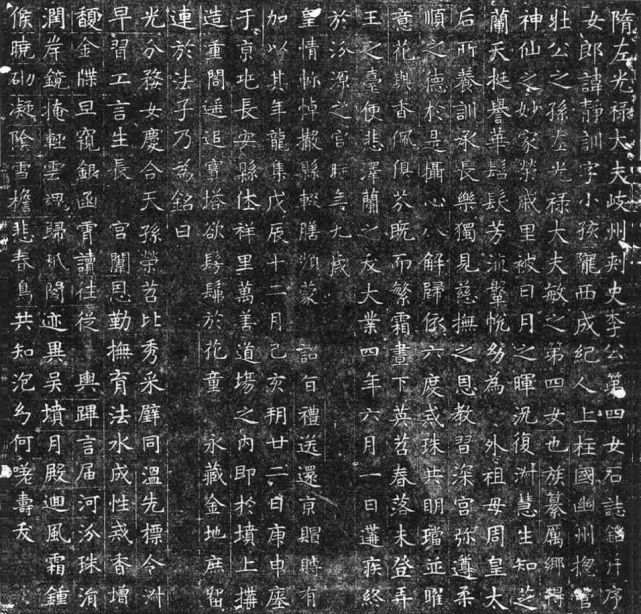 隋左光祿大夫岐州刺史李公第四女石誌銘并序
女郎諱靜訓字小孩隴西成紀人上柱國幽州捴管
壯公之孫左光祿大夫敏之第四女也族纂厲鄉
神仙之妙家榮戚里被日月之暉況復淑慧生知芝
蘭天挺譽華髫髮芳流鞶帨幼為 外祖母周皇太
后所養訓承長樂獨見慈撫之恩教習深宮弥遵柔
順之德於是攝心八解歸依六度戒珠共明璫並曜
意花與香佩俱芬既而繁霜晝下英苕春落未登弄
玉之臺便悲澤蘭之夭大業四年六月一日遘疾終
於汾源之宮時年九歲
皇情軫悼撤縣輟膳頻蒙 詔旨禮送還京賵賻有
加以其年龍集戊辰十二月己亥朔廿二日庚申瘞
于京兆長安縣休祥里萬善道場之內即於墳上搆
造重閣遥追寶塔欲髣髴於花童 永藏金地庶留
連於法子乃為銘曰
光分務女慶合天孫榮苕比秀采璧同溫先標令淑
早習工言生長 宮闈恩勤撫育法水成性戒香增
馥金牒旦窺銀函霄讀往從 輿蹕言届河汾珠涓
潤岸鏡掩輕雲魂歸 迹異吴墳月殿迴風霜鍾
候曉砌凝陰雪檐悲春鳥共知泡幻何嗟壽夭